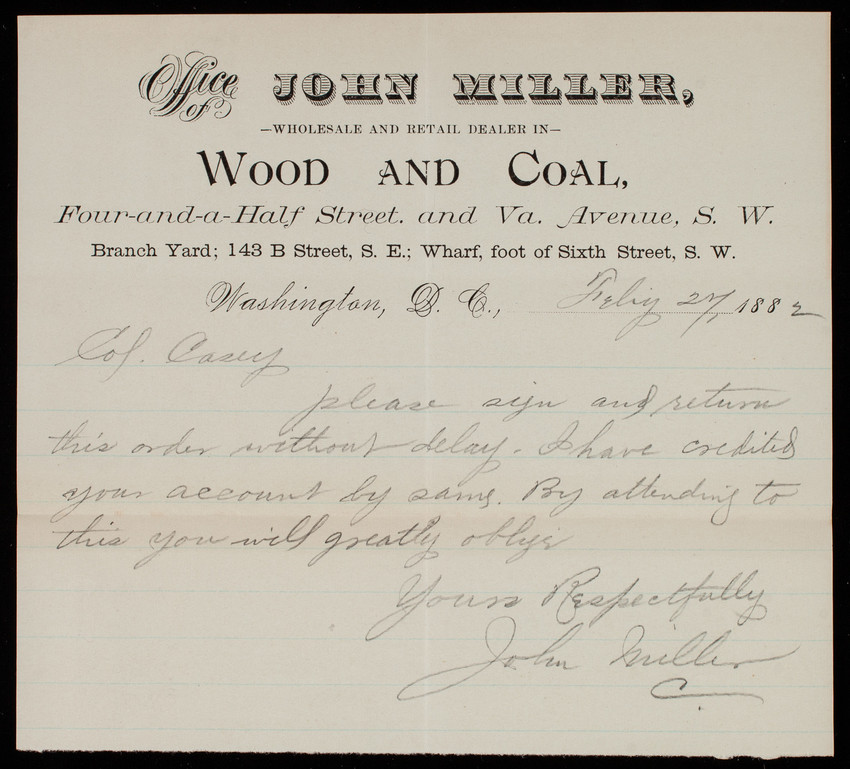 Office of JOHN MILLER,
—WHOLESALE AND RETAIL DEALER IN—
WOOD AND COAL,
Four-and-a-Half Street. and Va. Avenue, S. W.
Branch Yard; 143 B Street, S. E.; Wharf, foot of Sixth Street, S. W.
Washington, D. C., 27, 1882
Col. Casey
please sign and return
this order without delay. I have credited
your account by same. By attending to
this you will greatly oblige
Yours Respectfully
John Miller